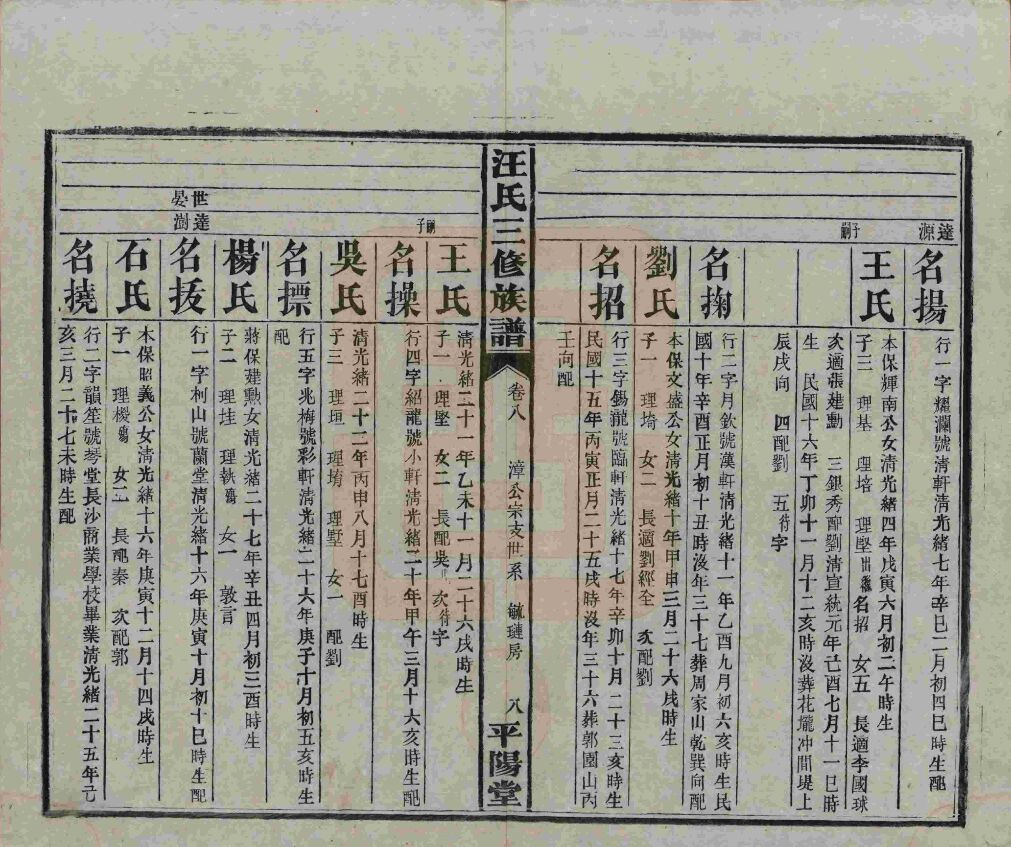 達源
名揚
行一字耀瀾號清軒清光緒七年辛巳二月初四巳時生配
子嗣
王氏
本保輝南公女清光緒四年戊寅六月初二午時生
子三　理基　理培　理堅出繼名招　女五　長適李國球
次適張建勳　三銀秀配劉清宣統元年己酉七月十一巳時
生　民國十六年丁卯十一月十二亥時沒葬花壠冲間堤上
辰戌向　四配劉　五待字
名掬
行二字月欽號漢軒清光緒十一年乙酉九月初六亥時生民
國十年辛酉正月初十丑時沒年三十七葬周家山乾巽向配
劉氏
本保文盛公女清光緒十年甲申三月二十六戌時生
子一　理埼　女二　長適劉經全　次配劉
名招
行三字錫龍號臨軒清光緒十七年辛卯十月二十三亥時生
民國十五年丙寅正月二十五戌時沒年三十六葬郭園山丙
壬向配
汪氏三修族譜
卷八　漳公宗支世系　毓璉房　八
平陽堂
嗣子
王氏
清光緒二十一年乙未十一月二十六戌時生
子一　理堅　女二　長配吳　次待字
名操
行四字紹龍號小軒清光緒二十年甲午三月十六亥時生配
吳氏
清光緒二十二年丙申八月十七酉時生
子三　理垣　理堉　理墅　女一　配劉
名摽
行五字兆梅號彩軒清光緒二十六年庚子十月初五亥時生
配
楊氏
蔣保建勳女清光緒二十七年辛丑四月初三酉時生
子二　理垚　理執殤　女一　敦言
世晏
達澍
名抜
行一字柯山號蘭堂清光緒十六年庚寅十月初十巳時生配
石氏
本保昭義公女清光緒十六年庚寅十二月十四戌時生
子一　理樱殤　女二　長配秦　次配郭
名撓
行二字韻笙號琴堂長沙商業學校畢業清光緒二十五年己
亥三月二十七未時生配